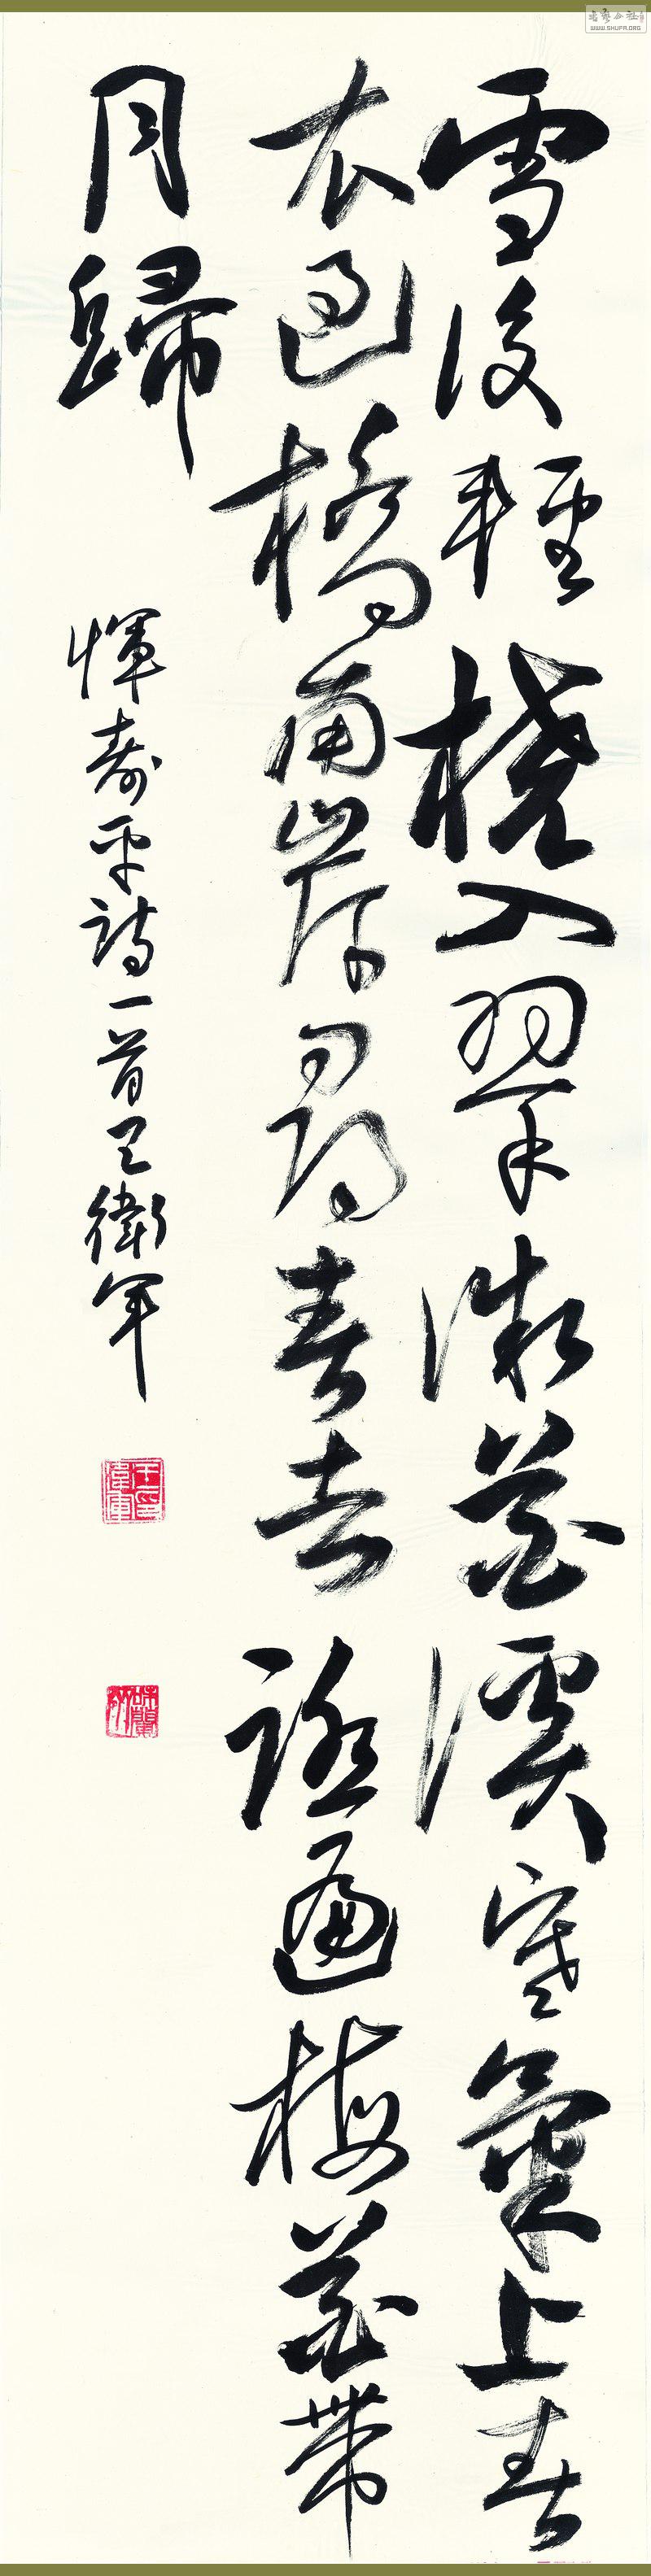 雪後輕橈入翠微花溪寒氣上春
衣過橋南岸尋春去踏遍梅花帶
月歸
惲壽平詩一首王衛軍
WWW.SHUFA.ORG